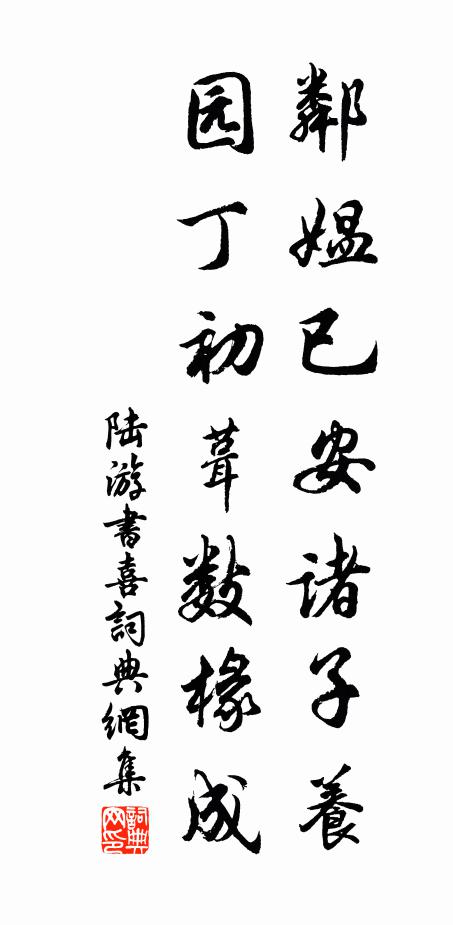 鄰媪已安诸子養
园丁初葺数椽成
陆游書喜詞典網集
詞典网印